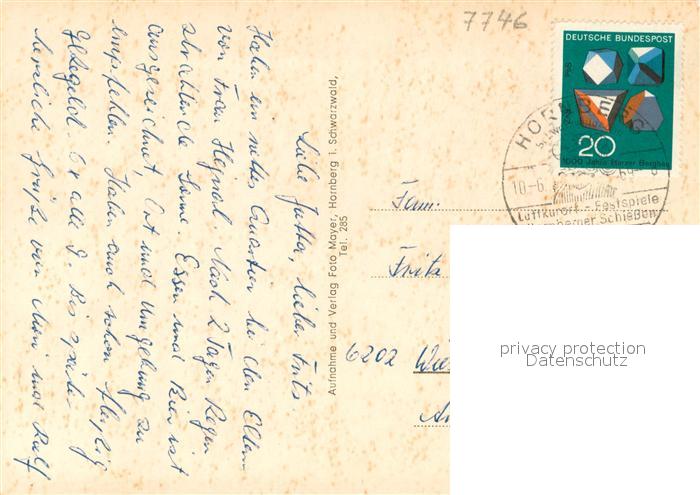 7746
DEUTSCHE BUNDESPOST
PbS
ZnS
20
1000 Jahre Harzer Bergbau
HORNBERG
10-6
69
Luftkurort - Festspiele
Hornberger Schießen
Liebe Jutta, lieber Fritz.
Haben ein nettes Quartier bei den Eltern
von Frau Hepsel. Nach 2 Tagen Regen
strahlende Sonne. Essen und Bier ist
ausgezeichnet, Ort und Umgebung zu
empfehlen. Haben auch schon fleißig
für alle D. Bis später
herzliche Grüße von Mari und Rolf
Aufnahme und Verlag Foto Mayer, Hornberg i. Schwarzwald,
Tel. 285
Fam.
Fritz
6202 Wie
privacy protection
Datenschutz